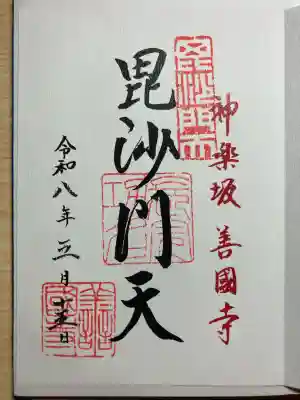 神楽坂 善國寺
毘沙門天
令和八年三月十五日